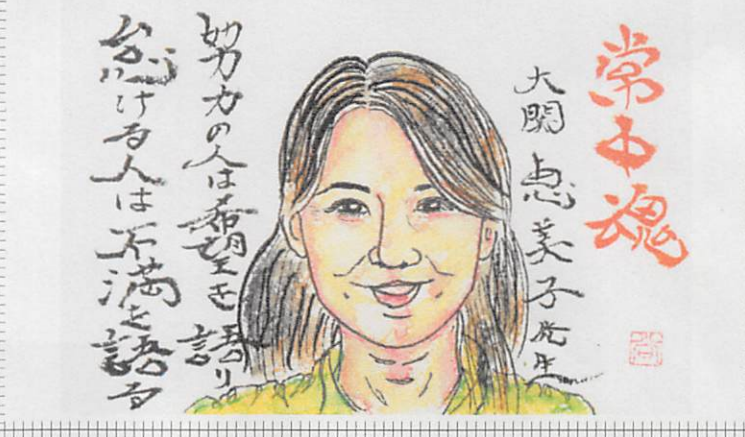 常中魂
大関 恵美子先生
努力の人は希望を語り
怠ける人は不満を語る